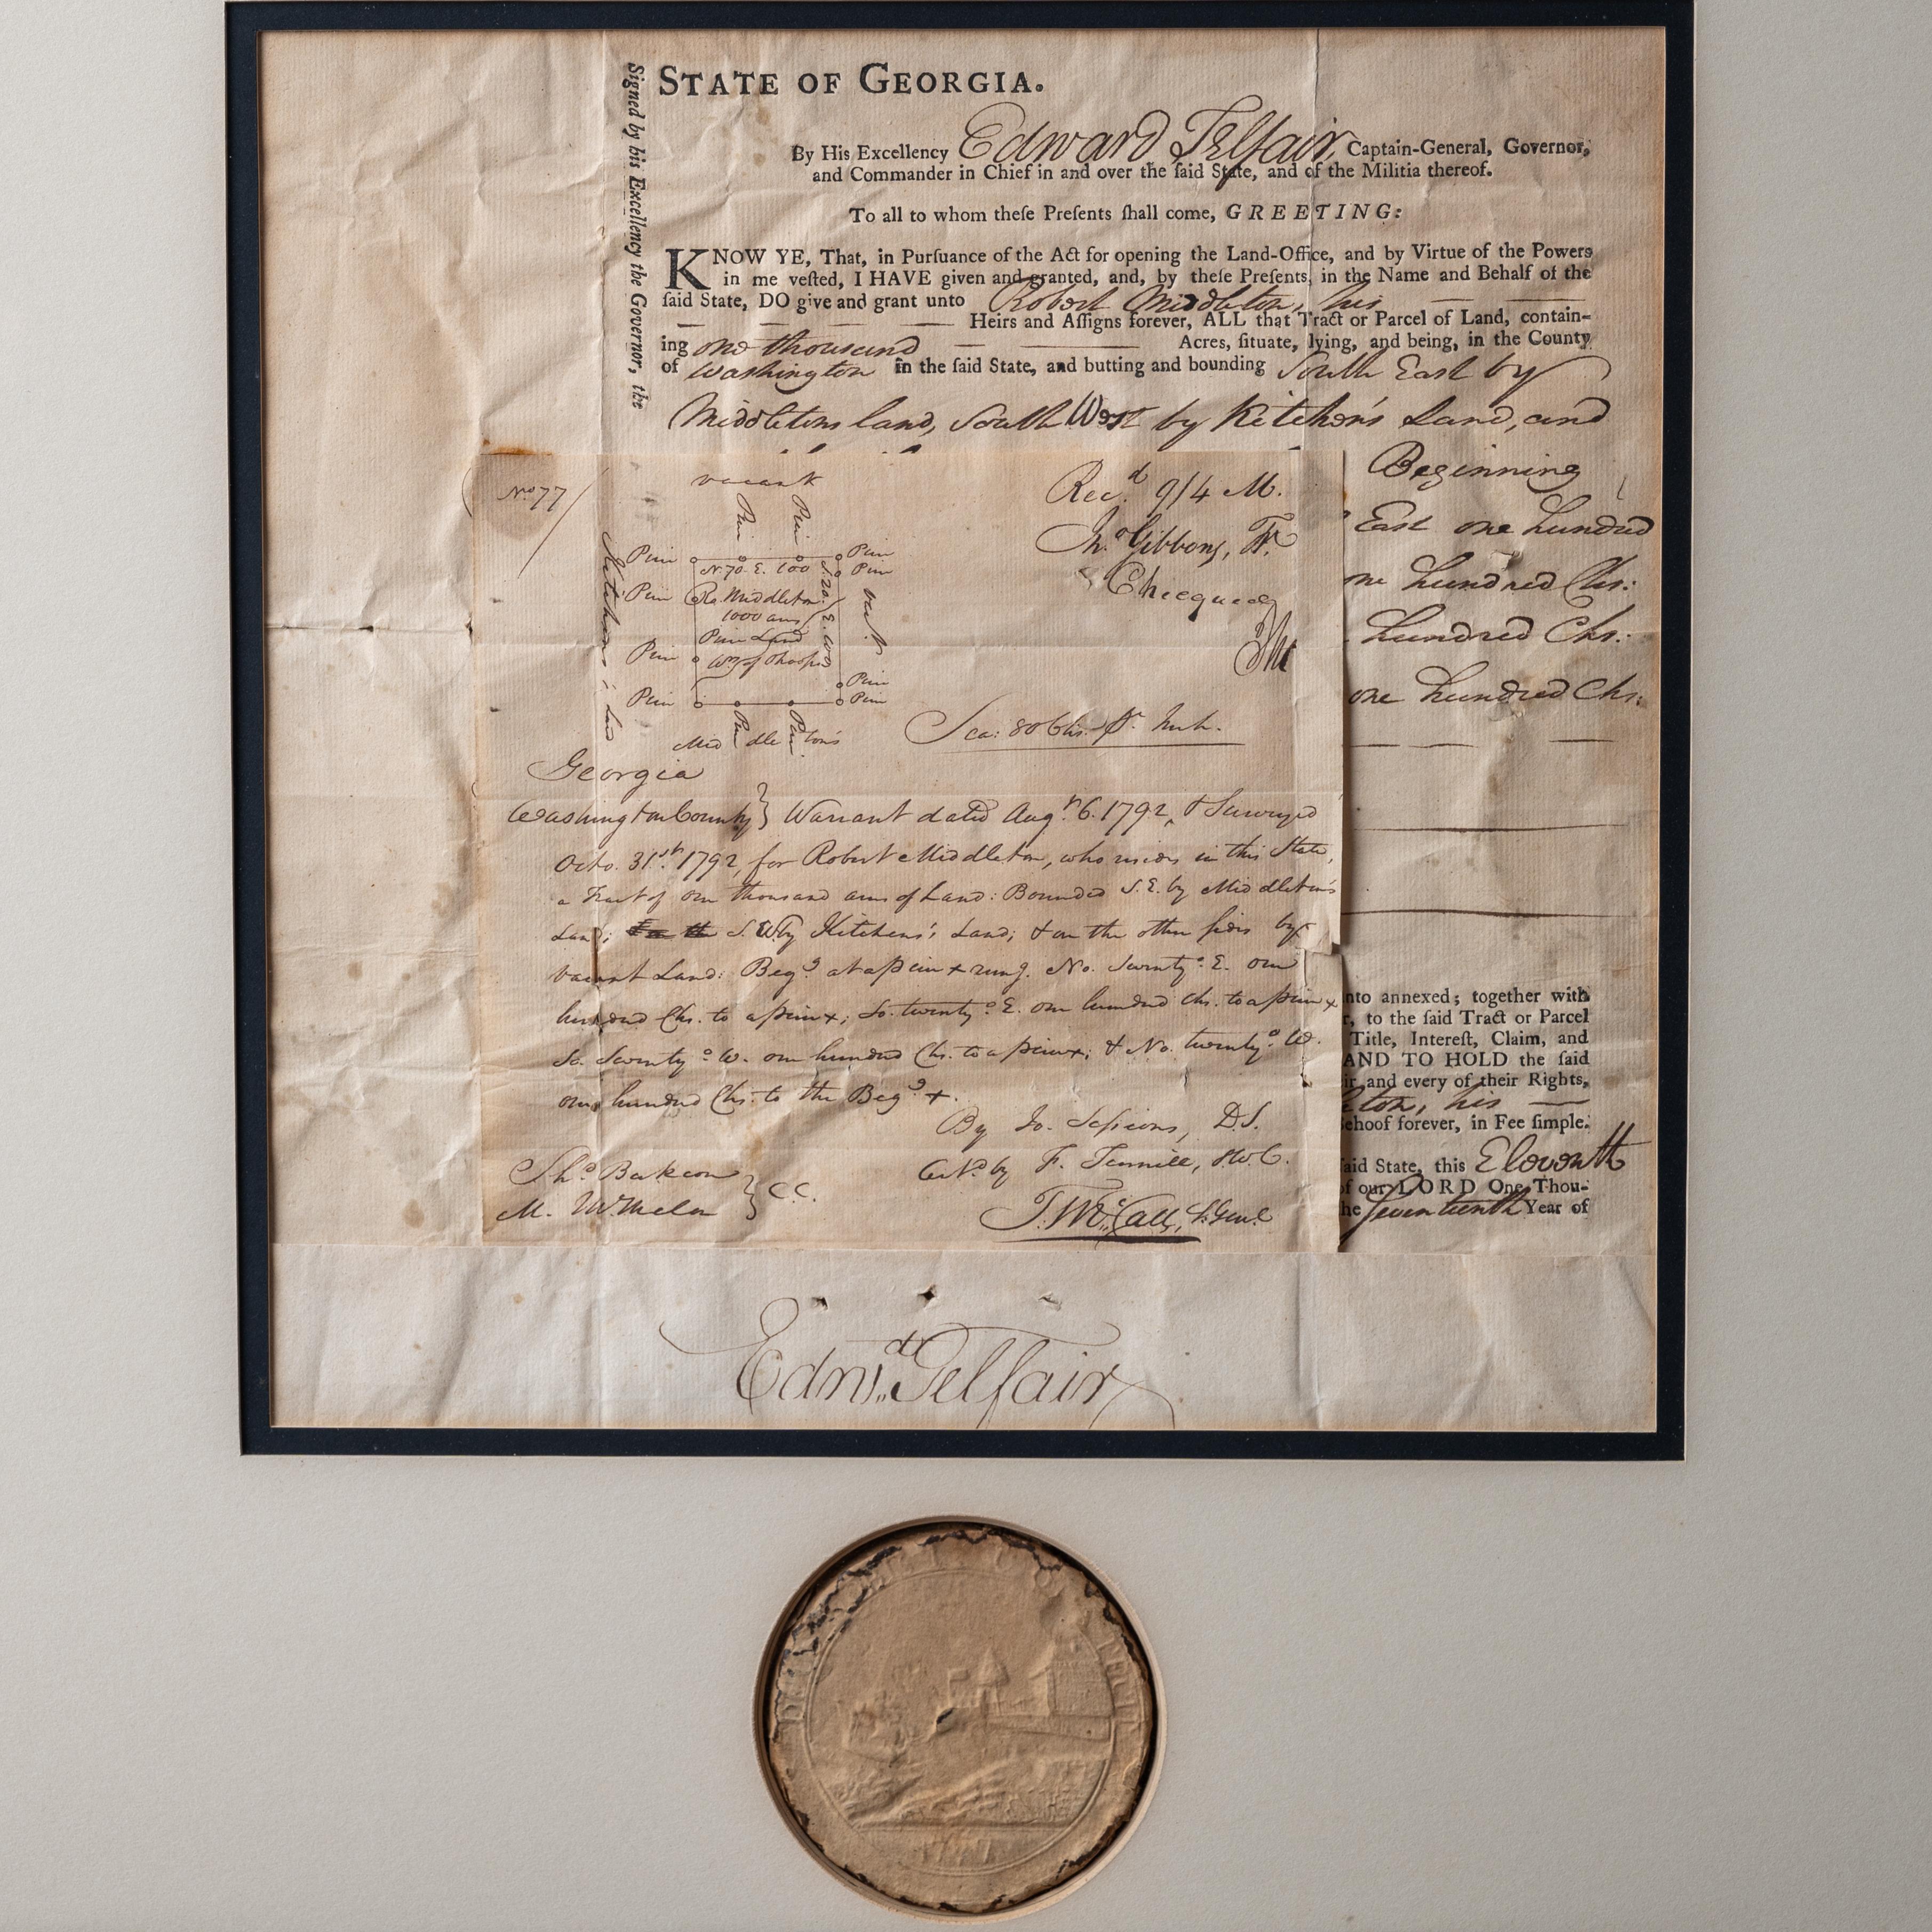 STATE OF GEORGIA.
By His Excellency Edward Telfair, Captain-General, Governor,
and Commander in Chief in and over the ſaid State, and of the Militia thereof.
To all to whom theſe Preſents ſhall come, GREETING:
KNOW YE, That, in Purſuance of the Act for opening the Land-Office, and by Virtue of the Powers
in me veſted, I HAVE given and granted, and, by theſe Preſents, in the Name and Behalf of the
ſaid State, DO give and grant unto Robert Middleton, his
Heirs and Aſſigns forever, ALL that Tract or Parcel of Land, contain-
ing one thousand Acres, ſituate, lying, and being, in the County
of Washington in the ſaid State, and butting and bounding South East by
Middletons land, South West by Kitchen's Land, and
Beginning
East one hundred
one hundred Chs:
hundred Chs:
one hundred Chs:
nto annexed; together with
r, to the ſaid Tract or Parcel
Title, Intereſt, Claim, and
AND TO HOLD the ſaid
ir and every of their Rights,
eton, his
ehoof forever, in Fee ſimple.
ſaid State, this Eleventh
of our LORD One Thou-
he Seventeenth Year of
Signed by his Excellency the Governor, the
No 77
vacant
Pine Pine
Pine Pine
N. 70 E. 100 Pine
Pine Ro. Middleton
1000 acres
Pine Land
Pine
S. 20 E. 100
vacant
Kitchens's Land
Pine
Pine Pine
Pine Pine
Middleton's
Recd. 9/4 M.
Jno. Gibbons, Tr.
Checqued
Sca: 80 Chs. Pr. Inch.
Georgia
Washington County } Warrant dated Augt. 6. 1792, & Surveyed
Octo. 31st. 1792, for Robert Middleton, who resides in this State,
a Tract of one thousand acres of Land: Bounded S.E. by Middleton's
Land; S.W. by Kitchens's Land; & on the other sides by
vacant Land: Beg.g at a pine + rung. No. Seventy.o E. one
hundred Chs. to a pine +; So. twenty.o E. one hundred Chs. to a pine +
So. Seventy.o W. one hundred Chs. to a pine +; & No. twenty.o W.
one hundred Chs. to the Beg.g +.
By Jo. Sessions, D.S.
by F. Tennille, S.W.C.
Thos
M. } C.C.
T. McCall, S. Genl.
Edwd. Telfair